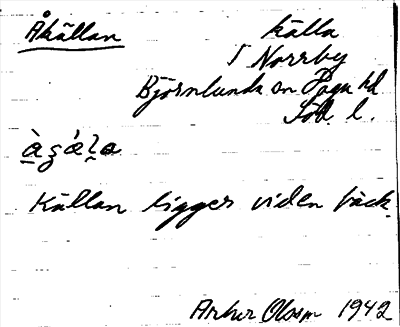 Åkällan källa
I Norrby
Björnlunda sn Daga hd
Söd. l.
Källan ligger viden bäck.
Artur Olsson 1942